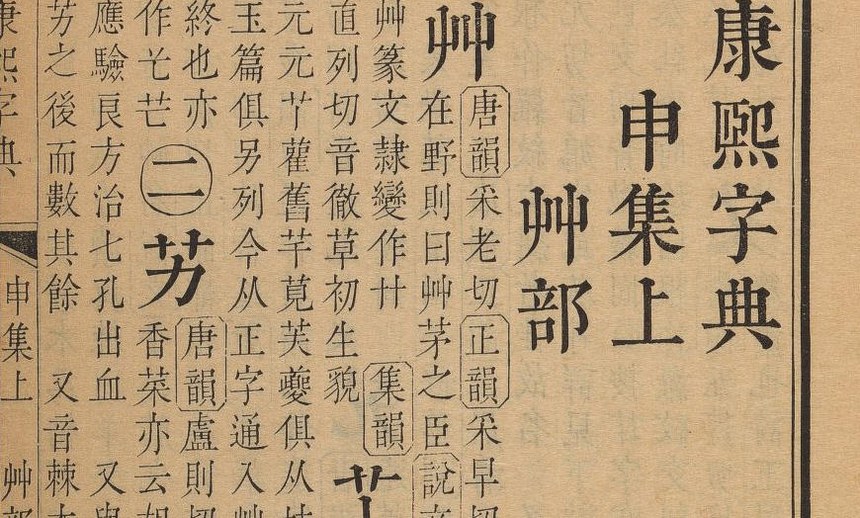 康熙字典
申集上
艸部
艸
唐韻采老切正韻采早切
在野則曰艸茅之臣說文
艸篆文隷變作廾 集韻
直列切音徹草初生貌
元元艹雚舊芉萈芙夔俱从
玉篇俱另列今从正字通入艸
終也亦
作芒
二
艻
唐韻盧則切
香菜亦云
應驗良方治七孔出血 又
芳之後而數其餘 又音棘
康熙字典
申集上
艸部